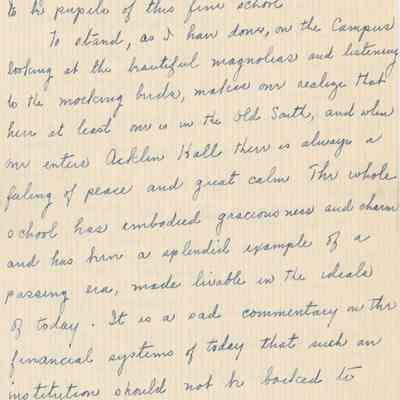 to the pupils of this fine school
To stand, as I have done, on the Campus
looking at the beautiful magnolias and listening
to the mocking birds, makes one realize that
here at least one is in the Old South, and when
one enters Acklin Hall there is always a
feling of peace and great calm. The whole
school has embodied graciousness and charm
and has been a splendid example of a
passing era, made livable in the ideals
of today. It is a sad commentary on the
financial systems of today that such an
institution should not be backed to